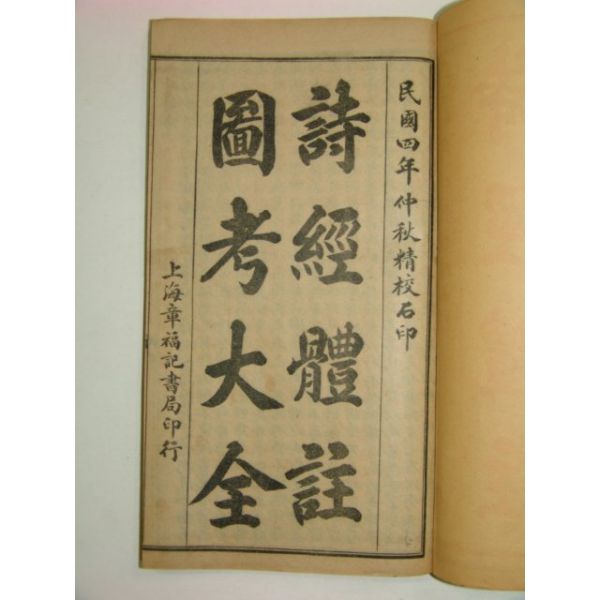 民國四年仲秋精校石印
詩經體註
圖考大全
上海章福記書局印行